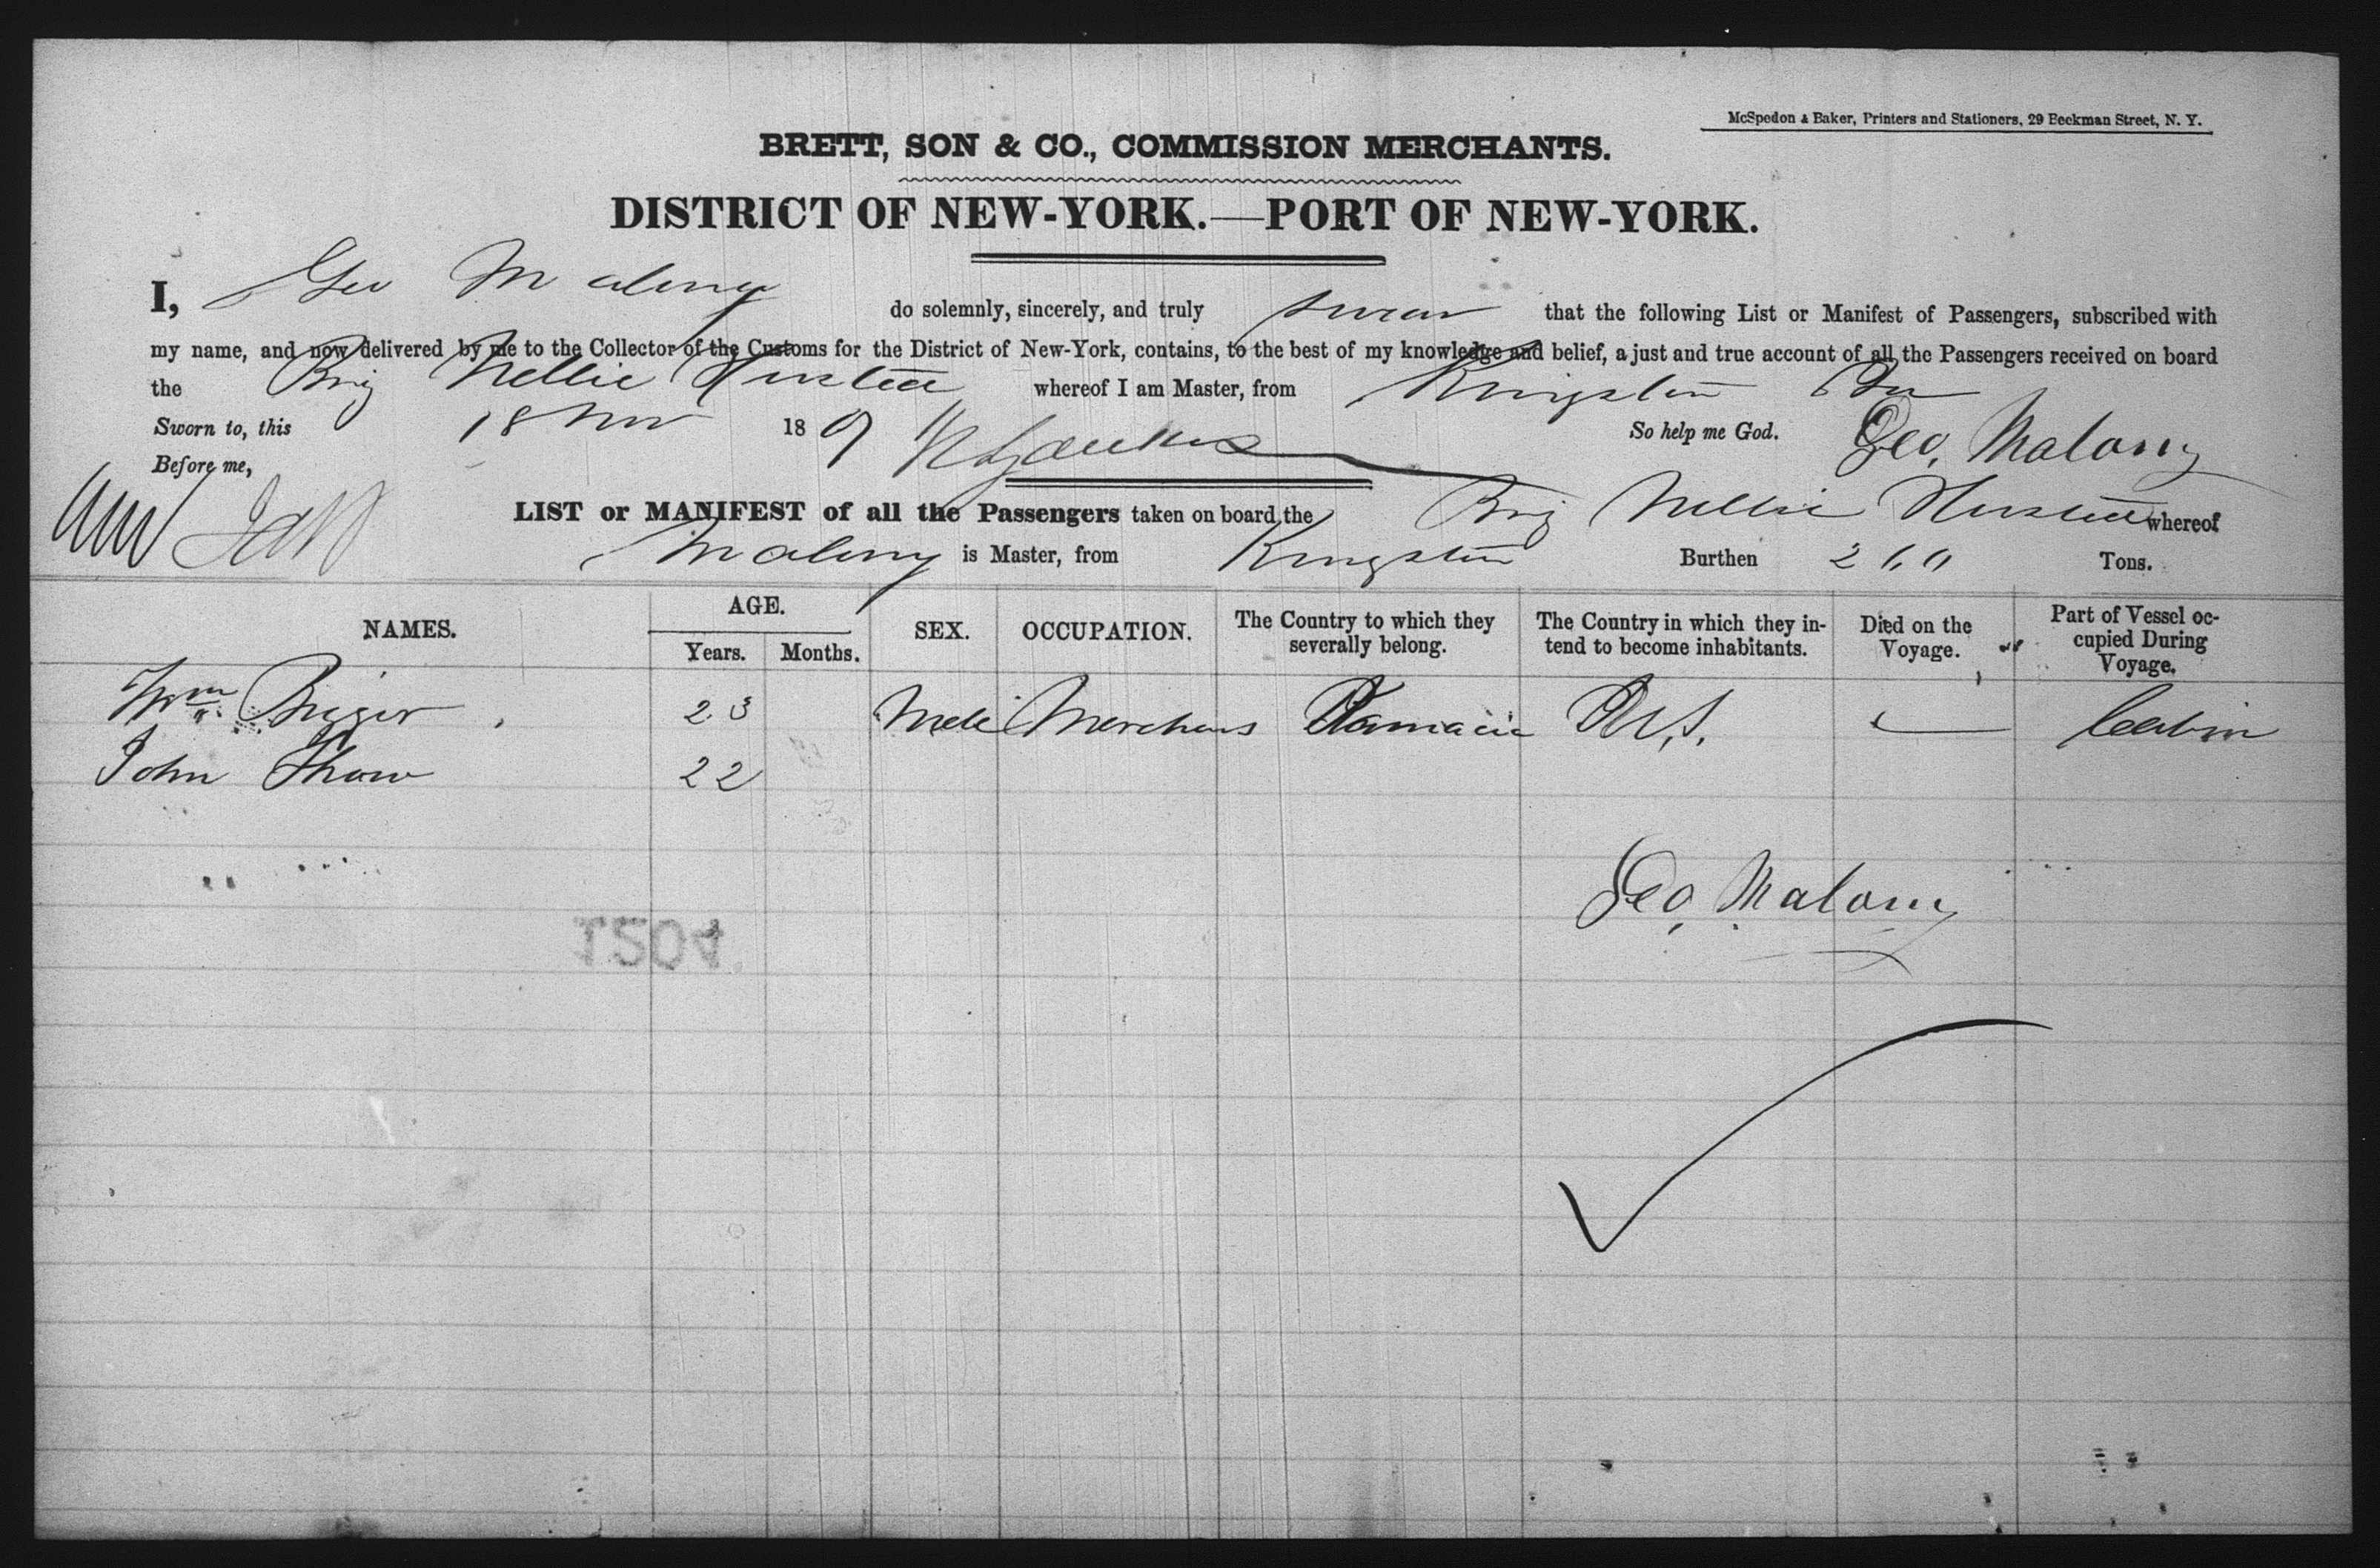 McSpedon & Baker, Printers and Stationers, 29 Beekman Street, N. Y.
BRETT, SON & CO., COMMISSION MERCHANTS.
DISTRICT OF NEW-YORK.—PORT OF NEW-YORK.
I, Geo Malony do solemnly, sincerely, and truly swear that the following List or Manifest of Passengers, subscribed with
my name, and now delivered by me to the Collector of the Customs for the District of New-York, contains, to the best of my knowledge and belief, a just and true account of all the Passengers received on board
the Brig Nellie whereof I am Master, from Kingston
Sworn to, this 18 Nov 18 So help me God. Geo. Malony
Before me,
LIST or MANIFEST of all the Passengers taken on board the Brig Nellie whereof
Malony is Master, from Kingston Burthen Tons.
NAMES. AGE. Years. Months. SEX. OCCUPATION. The Country to which they severally belong. The Country in which they intend to become inhabitants. Died on the Voyage. Part of Vessel occupied During Voyage.
Wm 23 Male Merchans Cabin
John 22
Geo. Malony
1504